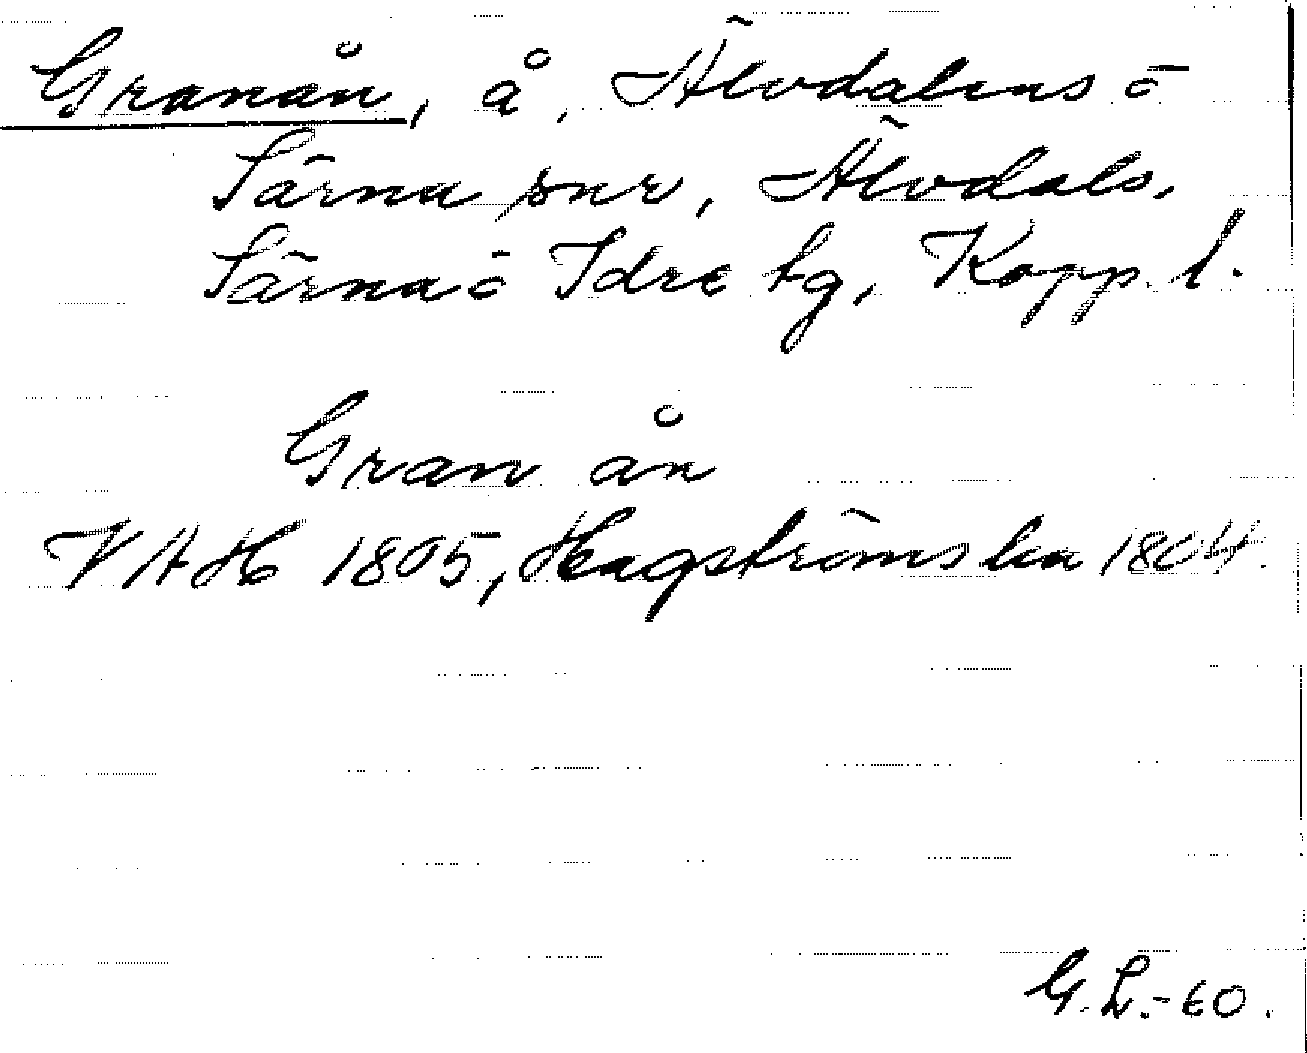 Granån, å, Älvdalens ö
Särna snr, Älvdals,
Särna ö Idre tg, Kopp. l.
Gran ån
VAH 1805, Hagströms ka 1804.
G.L.-60.